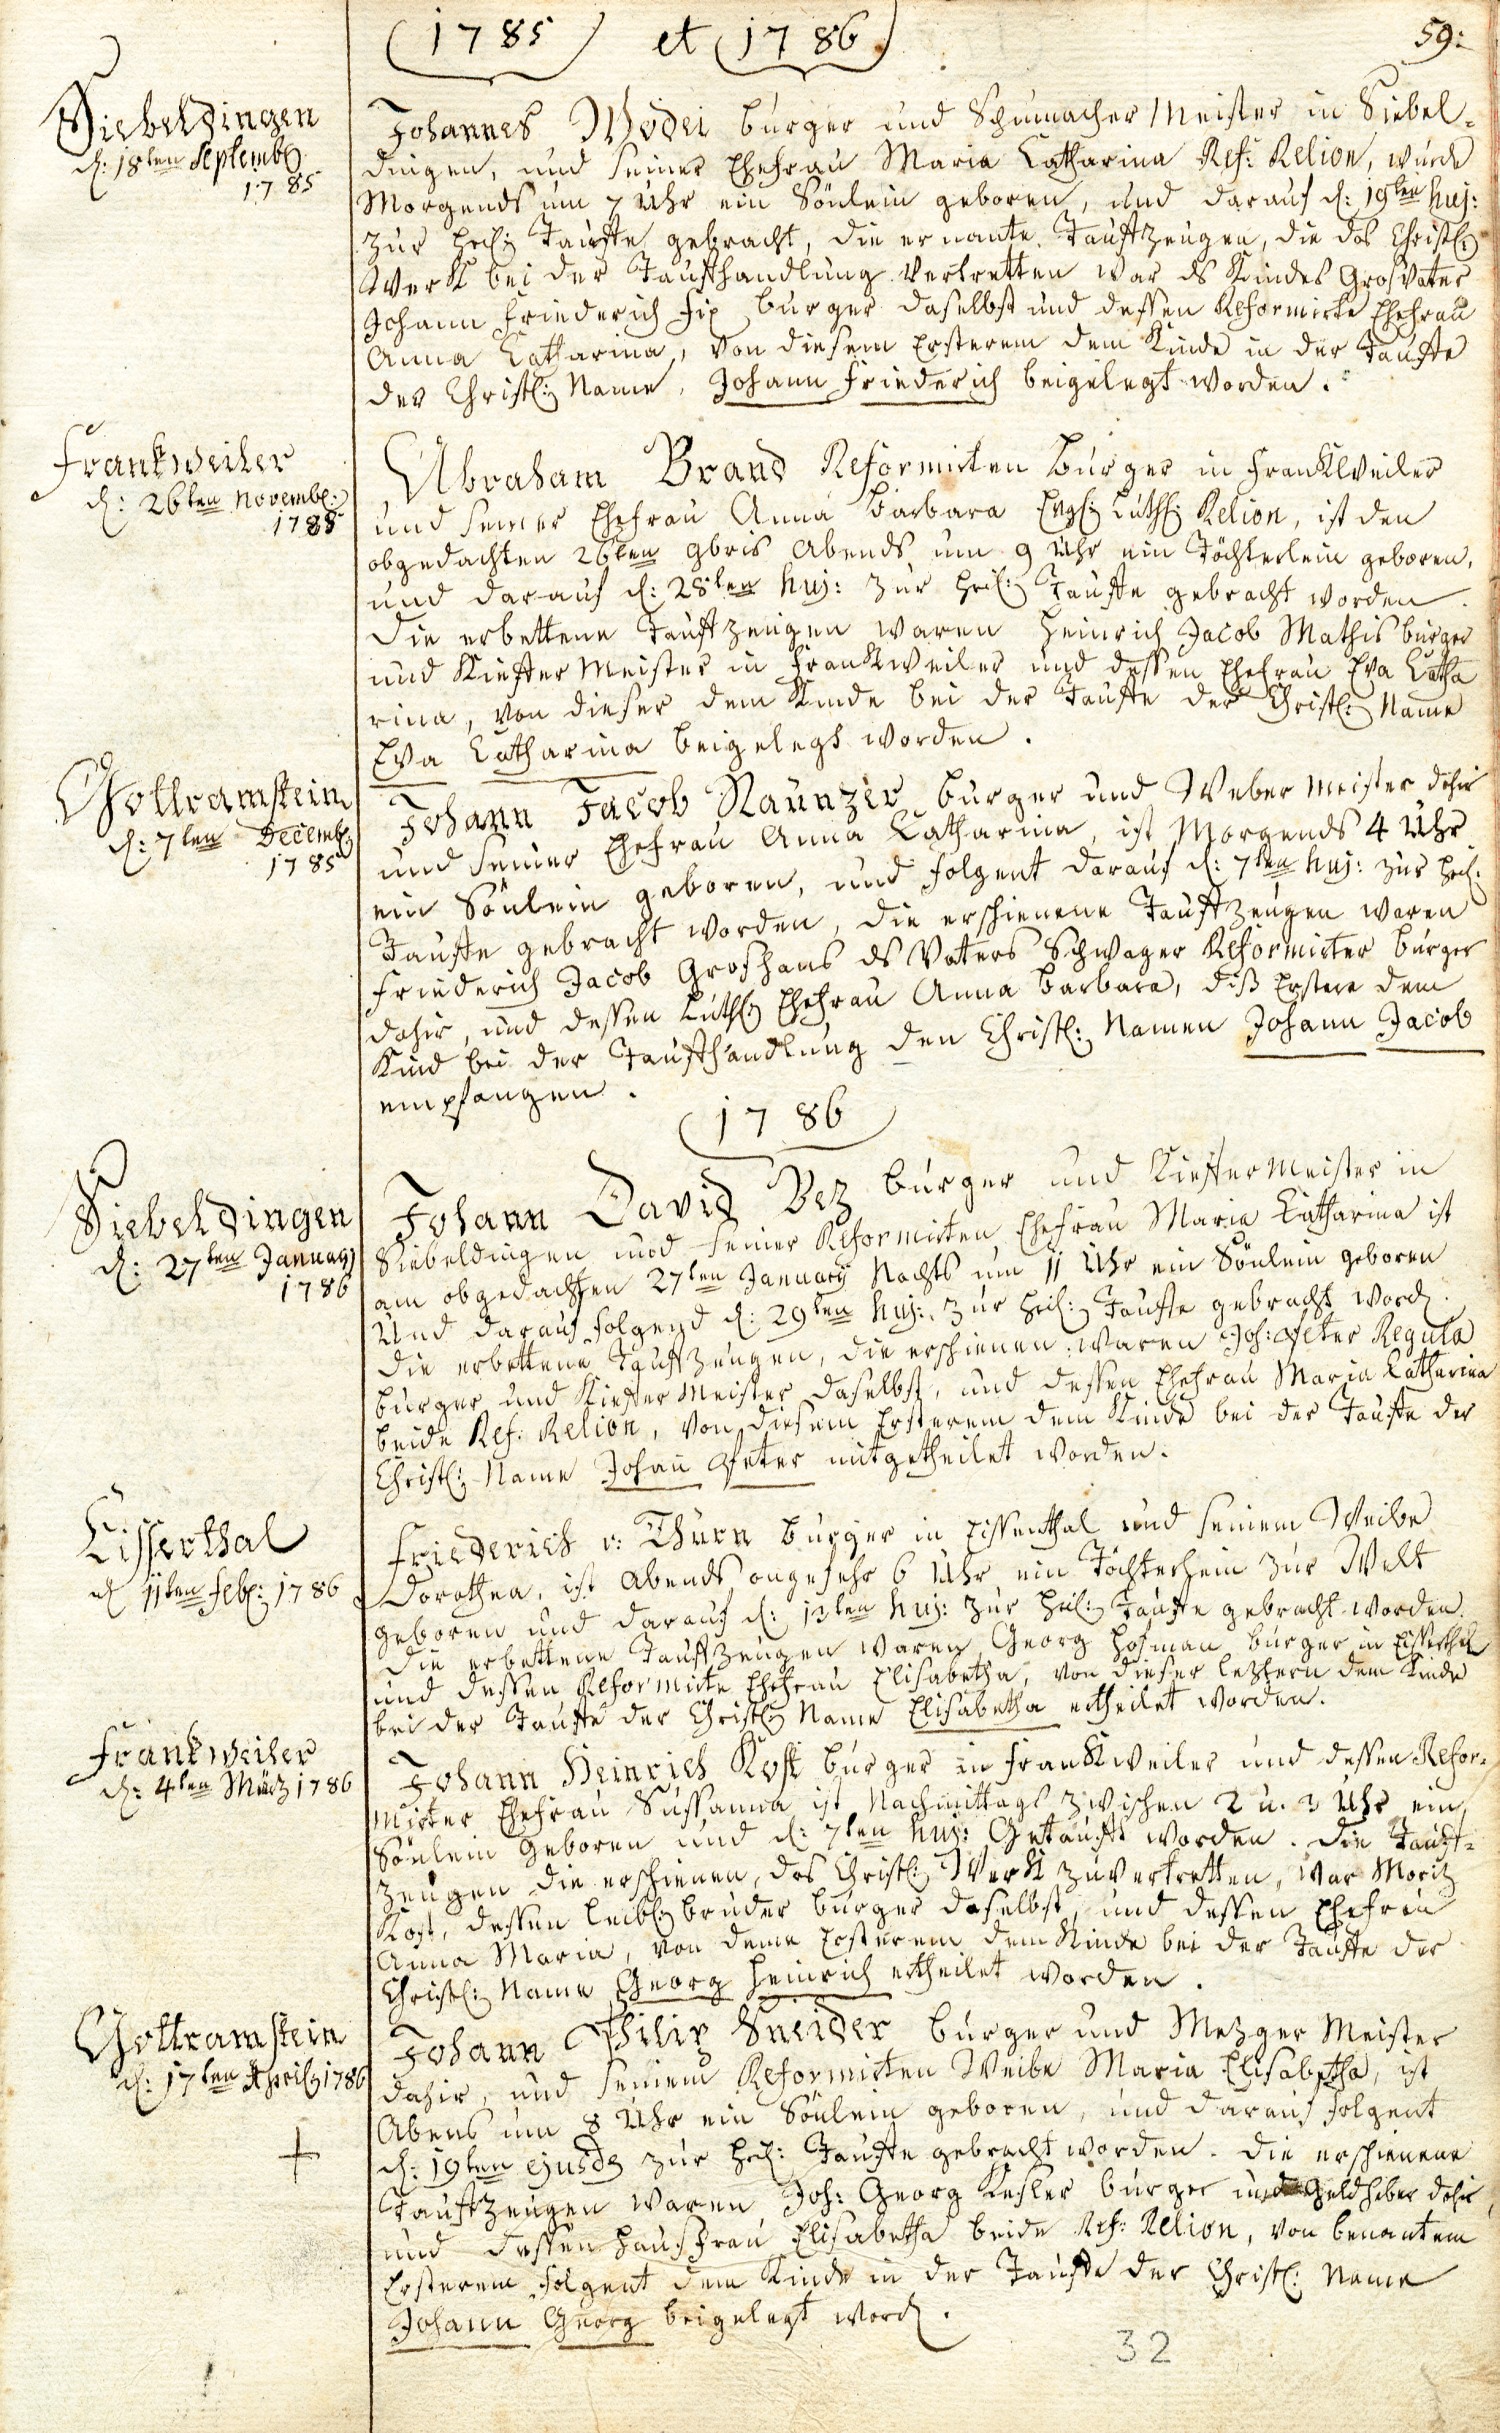 1785 et 1786
59:
Siebeldingen
d: 18ten Septembr
1785
Johannes Medei burger und Schumacher Meister in Siebel-
dingen, und seiner Ehefrau Maria Catharina Ref: Relion, wurde
Morgends um 7 Uhr ein Sönlein geboren, und darauf d: 19ten huj:
zur heil: Tauffe gebracht, die ernante Tauffzeugen, die das Christl:
Werk bei der Tauffhandlung vertretten war ds Kindes Grosvater
Johann Friederich Fix burger daselbst und dessen Reformirte Ehefrau
Anna Catharina, von diesem Ersterem dem Kinde in der Tauffe
der Christl: Name, Johann Friederich beigelegt worden.
Frankweiler
d: 26ten Novembr:
1785
Abraham Brand Reformirten burger in Frankweiler
und seiner Ehefrau Anna Barbara Evgl: Luth: Relion, ist den
obgedachten 26ten 9bris Abends um 9 Uhr ein Töchterlein geboren,
und darauf d: 28ten huj: zur heil: Tauffe gebracht worden.
Die erbettene Tauffzeugen waren Heinrich Jacob Mathis burger
und Kieffer Meister in Frankweiler und dessen Ehefrau Eva Catha
rina, von dieser dem Kinde bei der Tauffe der Christl: Name
Eva Catharina beigelegt worden.
Gottramstein
d: 7ten Decembr
1785
Johann Jacob Naunzir burger und Weber Meister dahir
und seiner Ehefrau Anna Catharina, ist Morgends 4 Uhr
ein Sönlein geboren, und folgent darauf d: 7ten huj: zur heil:
Tauffe gebracht worden, die erschienene Tauffzeugen waren
Friederich Jacob Groshans ds Vaters Schwager Reformirter burger
dahir, und dessen Luth: Ehefrau Anna Barbara, diß Erstere dem
Kind bei der Tauffhandlung den Christl: Namen Johann Jacob
empfangen.
1786
Siebeldingen
d: 27ten January
1786
Johann David Bez burger und Kieffer Meister in
Siebeldingen und seiner Reformirten Ehefrau Maria Catharina ist
am obgedachten 27ten January Nachts um 11 Uhr ein Sönlein geboren
Und darauf folgend d: 29ten huj: zur heil: Tauffe gebracht word.
die erbettene Tauffzeugen, die erschienen waren Joh: Peter Regula
burger und Kieffer Meister daselbst, und dessen Ehefrau Maria Catharina
beide Ref: Relion, von diesem Ersterem dem Kinde bei der Tauffe der
Christl: Name Johan̄ Peter mitgetheilet worden.
Eisserthal
d 11ten Feb: 1786
Friederich v: Thurn burger in Eissenthal und seinem Weibe
Dorothea, ist Abends ongefehr 6 Uhr ein Töchterlein zur Welt
geboren und darauf d: 13ten huj: zur heil: Tauffe gebracht worden.
die erbettene Tauffzeugen waren Georg Hofman burger in Eisserthal
und dessen Reformirte Ehefrau Elisabetha, von dieser leztern dem Kinde
bei der Tauffe der Christl: Name Elisabetha ertheilet worden.
Frankweiler
d: 4ten Märtz 1786
Johann Heinrich Kost burger in Frankweiler und dessen Refor-
mirter Ehefrau Sussanna ist Nachmittags zwischen 2 u. 3 Uhr ein
Sönlein Geboren und d: 7ten huj: Getaufft worden. Die Tauff-
zeugen die erschienen, das Christl: Werk zuvertretten, war Moritz
Kost, dessen leibl: bruder burger daselbst, und dessen Ehefrau
Anna Maria, von deme Ersterem dem Kinde bei der Tauffe der
Christl: Name Georg Heinrich ertheilet worden.
Gottramstein
d: 17ten April 1786
Johann Philip Sneider burger und Metzger Meister
dahir, und seinem Reformirten Weibe Maria Elisabetha, ist
Abens um 8 Uhr ein Sönlein geboren, und darauf folgent
d: 19ten ejusd zur heil: Tauffe gebracht worden. Die erschienene
Tauffzeugen waren Joh: Georg Kesler burger und Geldheber dahir,
und dessen Hausfrau Elisabetha beide Ref: Relion, von benantem
Ersterem folgent dem Kinde in der Tauffe der Christl: Name
Johann Georg beigelegt word.
32